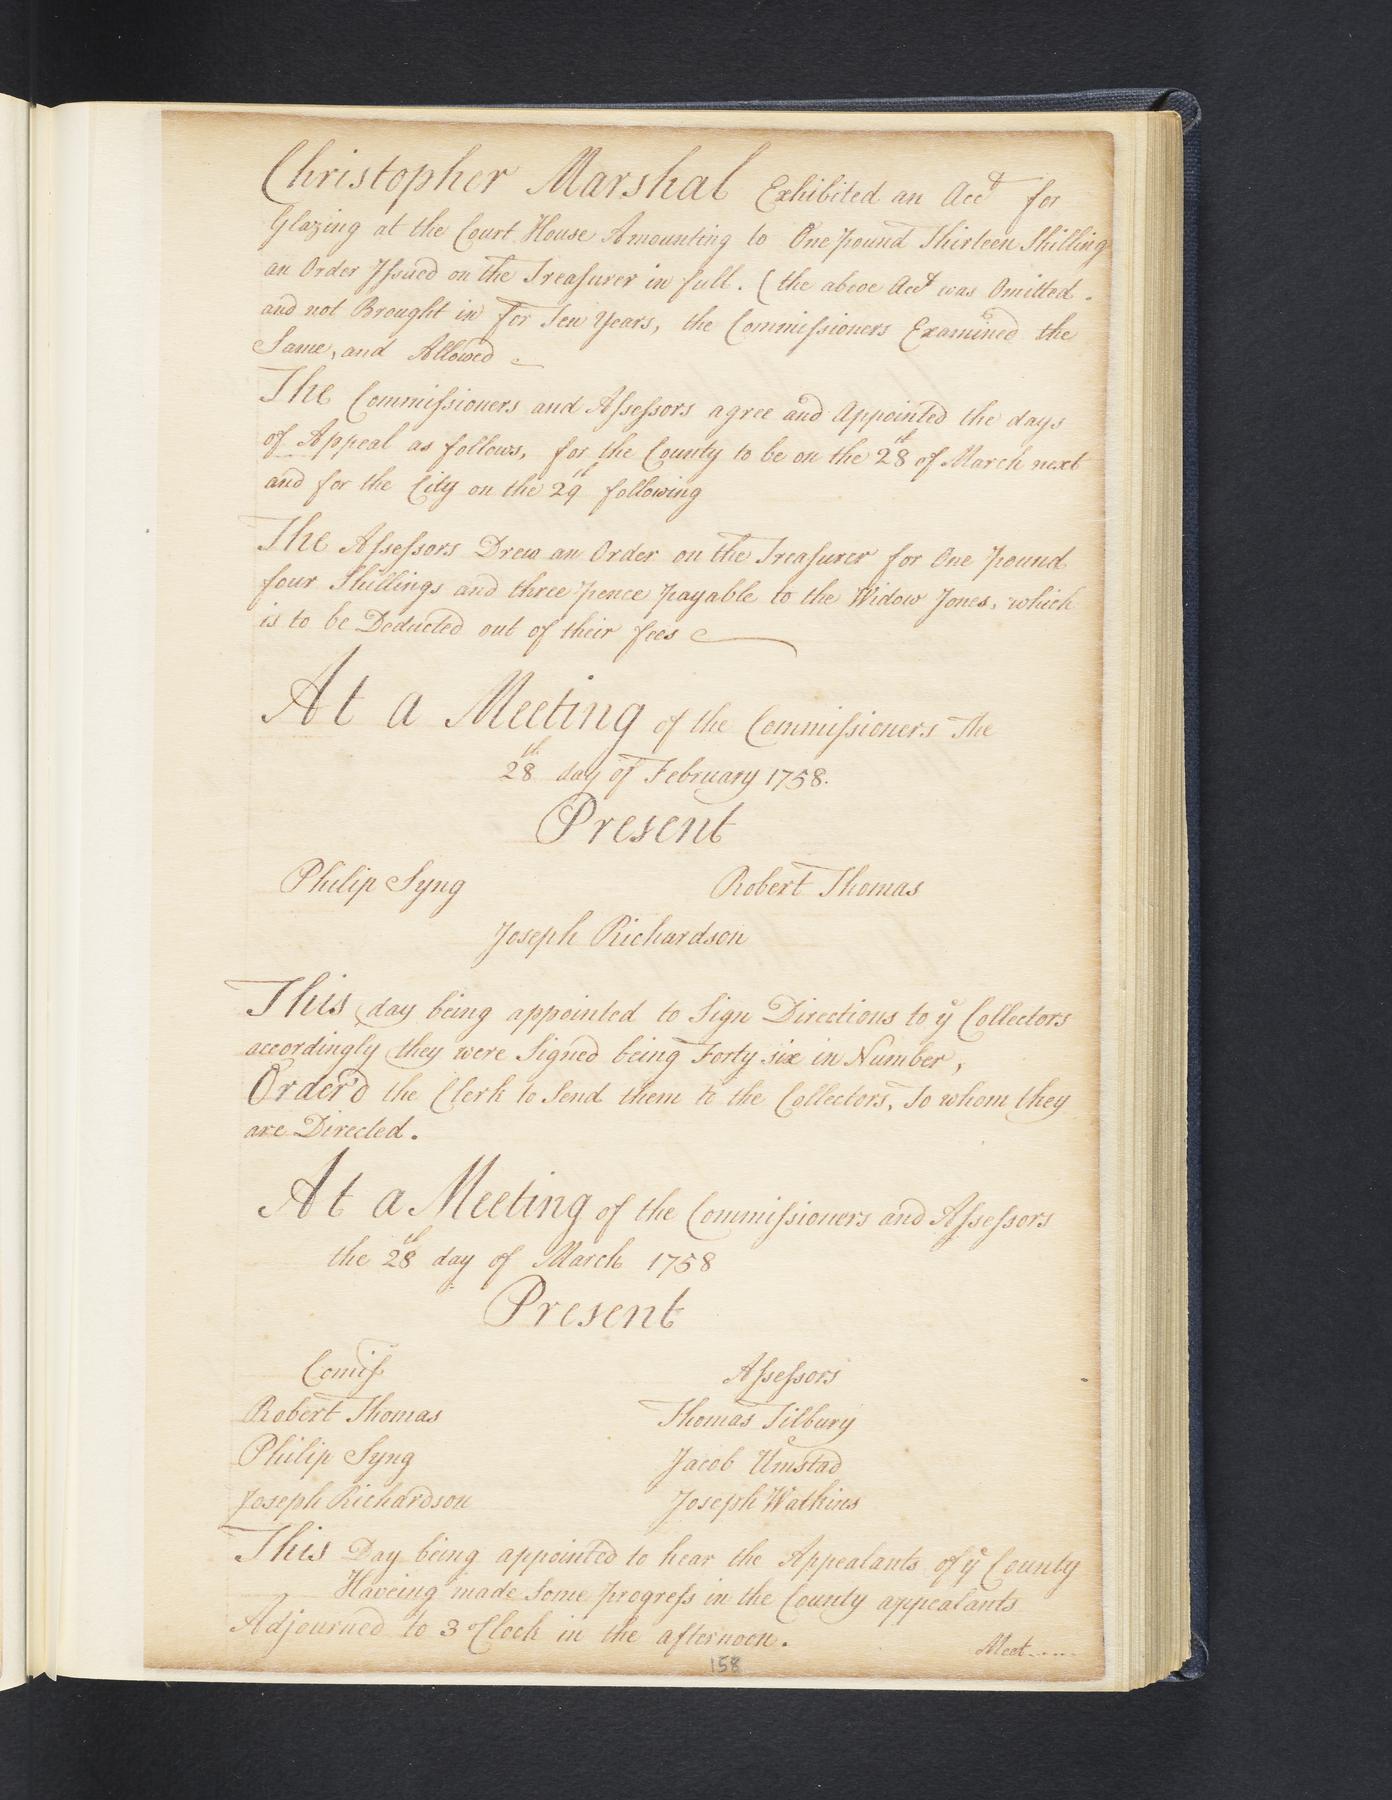 Christopher Marshal Exhibited an Acct for
Glazing at the Court House Amounting to One pound Thirteen Shilling
an Order Issued on the Treasurer in full. ( the above Acct was Omitted.
and not Brought in for Ten Years, the Commissioners Examined the
Same, and Allowed
The Commissioners and Assessors agree and Appointed the days
of Appeal as follows, for the County to be on the 28th of March next
and for the City on the 29th following
The Assessors Drew an Order on the Treasurer for One pound
four Shillings and three pence payable to the Widow Jones, which
is to be Deducted out of their fees
At a Meeting of the Commissioners The
28th day of February 1758.
Present
Philip Syng Robert Thomas
Joseph Richardson
This day being appointed to Sign Directions to ye Collectors
accordingly they were Signed being Forty six in Number,
Order'd the Clerk to Send them to the Collectors, To whom they
are Directed.
At a Meeting of the Commissioners and Assessors
the 28th day of March 1758
Present
Comiss Assessors
Robert Thomas Thomas Tilbury
Philip Syng Jacob Umstad
Joseph Richardson Joseph Watkins
This Day being appointed to hear the Appealants of ye County
Haveing made Some progress in the County appealants
Adjourned to 3 oClock in the afternoon.
Meet.....
158